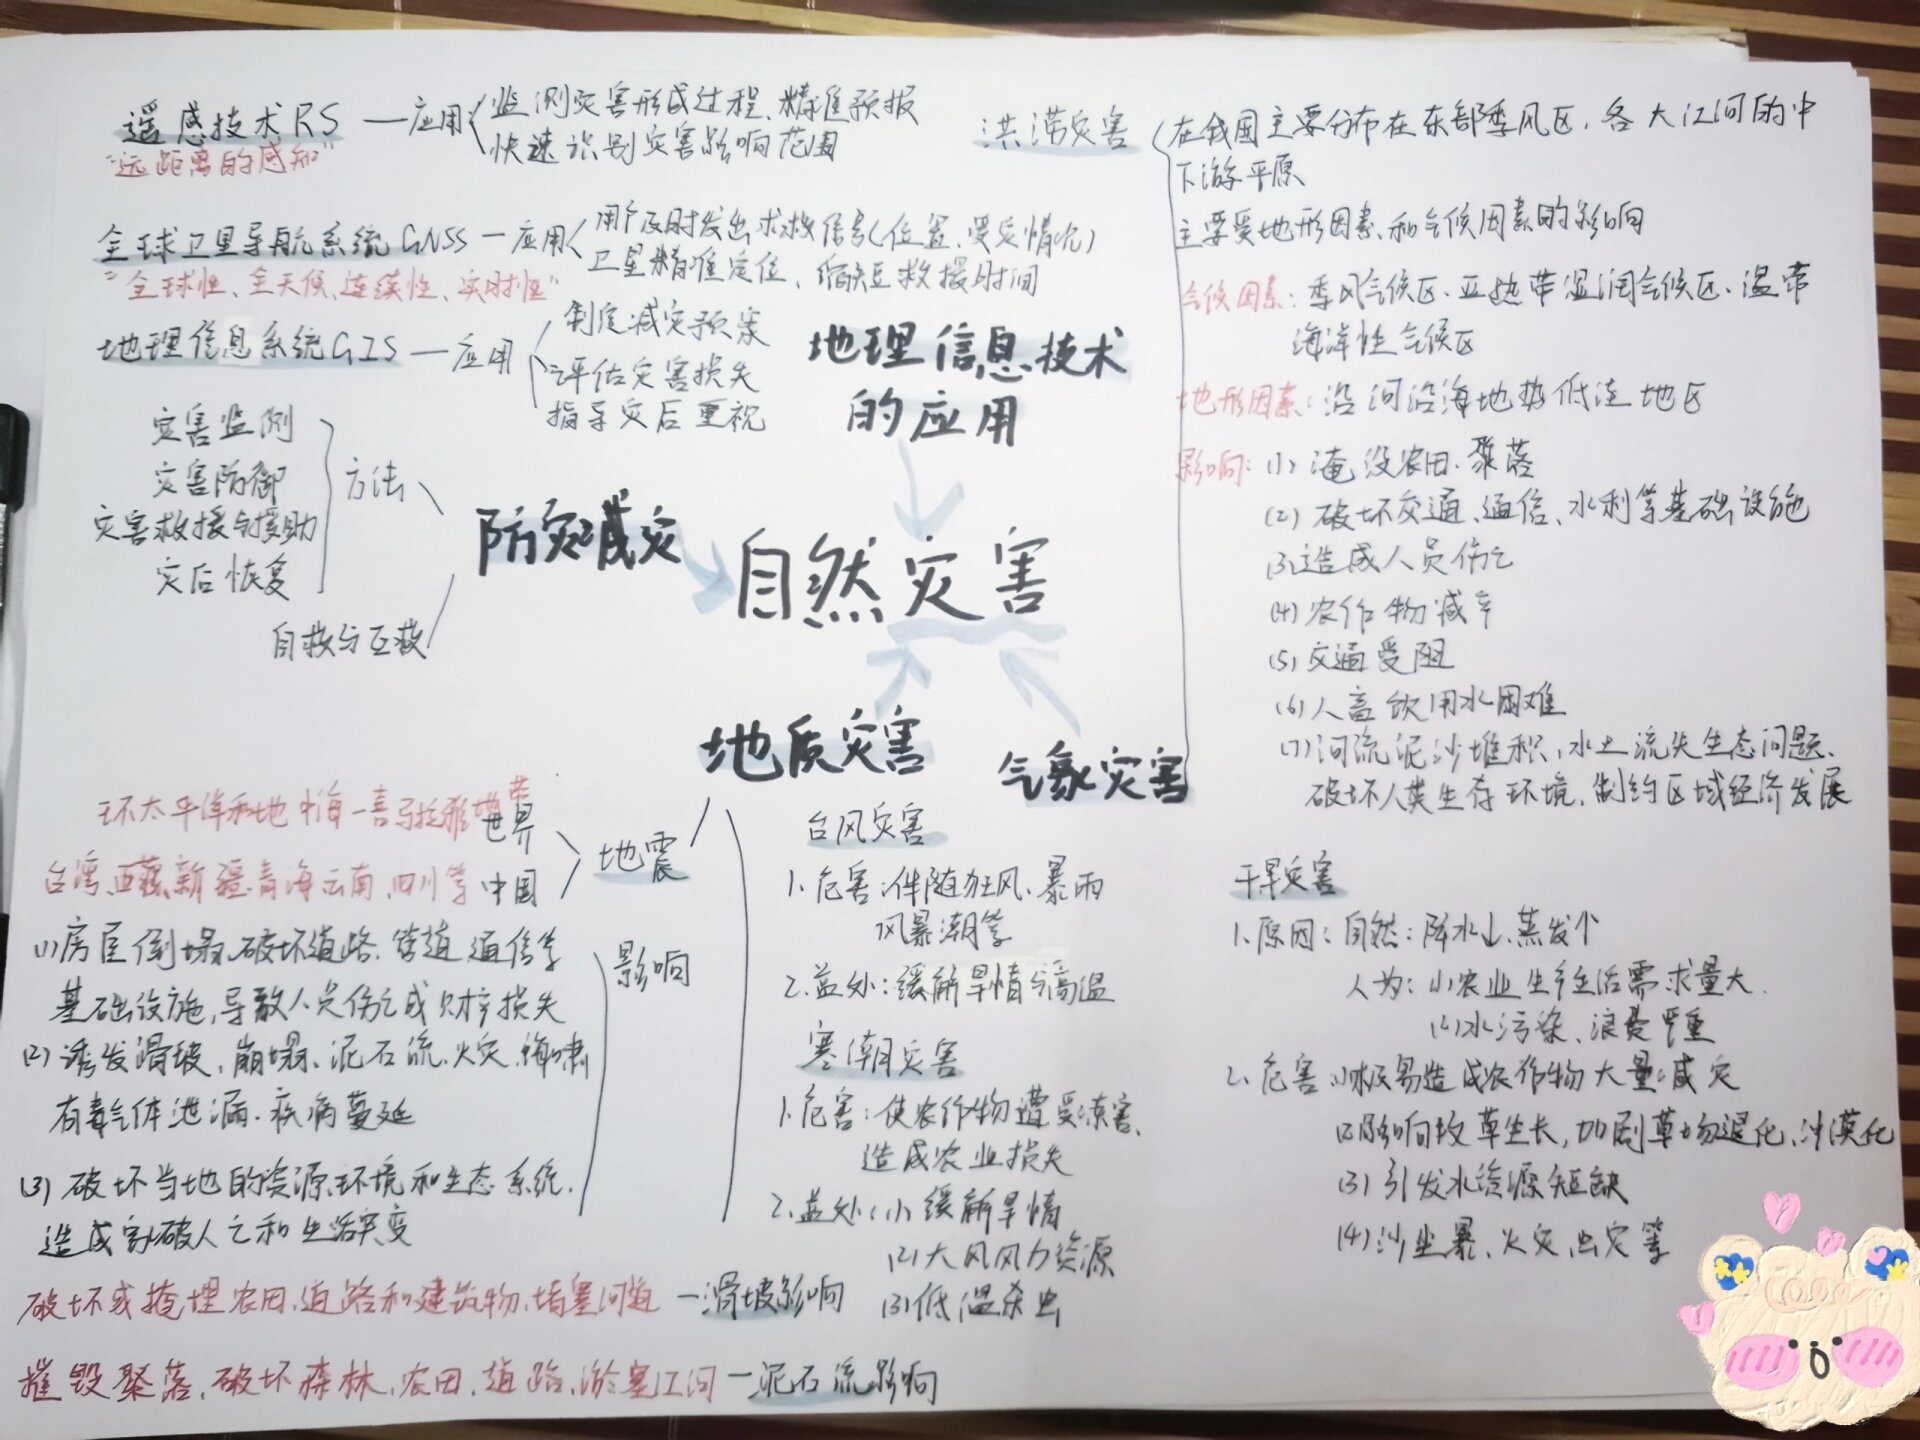 遥感技术RS — 应用
监测灾害形成过程、精准预报
快速识别灾害影响范围
"远距离的感知"
全球卫星导航系统GNSS — 应用
用户及时发出求救信号(位置、受灾情况)
卫星精准定位、缩短救援时间
"全球性、全天候、连续性、实时性"
地理信息系统GIS — 应用
制定减灾预案
评估灾害损失
指导灾后重视
地理信息技术
的应用
灾害监测
灾害防御
灾害救援与援助
灾后恢复
方法
自救与互救
防灾减灾
自然灾害
地质灾害
气象灾害
洪涝灾害
在我国主要分布在东部季风区、各大江河的中
下游平原
主要受地形因素、和气候因素的影响
气候因素：季风气候区、亚热带湿润气候区、温带
海洋性气候区
地形因素：沿河沿海地势低洼地区
影响：(1) 淹没农田、聚落
(2) 破坏交通、通信、水利等基础设施
(3) 造成人员伤亡
(4) 农作物减产
(5) 交通受阻
(6) 人畜饮用水困难
(7) 河流泥沙堆积、水土流失生态问题、
破坏人类生存环境、制约区域经济发展
环太平洋和地中海—喜马拉雅地带
世界
台湾、西藏、新疆、青海、云南、四川等
中国
地震
影响
(1) 房屋倒塌、破坏道路、管道、通信等
基础设施，导致人员伤亡或财产损失
(2) 诱发滑坡、崩塌、泥石流、火灾、海啸
有毒气体泄漏、疾病蔓延
(3) 破坏当地的资源环境和生态系统、
造成家破人亡和生活突变
破坏或掩埋农田、道路和建筑物，堵塞河道 — 滑坡影响
摧毁聚落、破坏森林、农田、道路、淤塞江河 — 泥石流影响
台风灾害
1、危害：伴随狂风、暴雨
风暴潮等
2、益处：缓解旱情与高温
寒潮灾害
1、危害：使农作物遭受冻害、
造成农业损失
2、益处：(1) 缓解旱情
(2) 大风风力资源
(3) 低温杀虫
干旱灾害
1、原因：自然：降水↓、蒸发↑
人为：(1) 农业生产生活需求量大
(2) 水污染、浪费严重
2、危害 (1) 极易造成农作物大量减灾
(2) 影响牧草生长，加剧草场退化、沙漠化
(3) 引发水资源短缺
(4) 沙尘暴、火灾、虫灾等